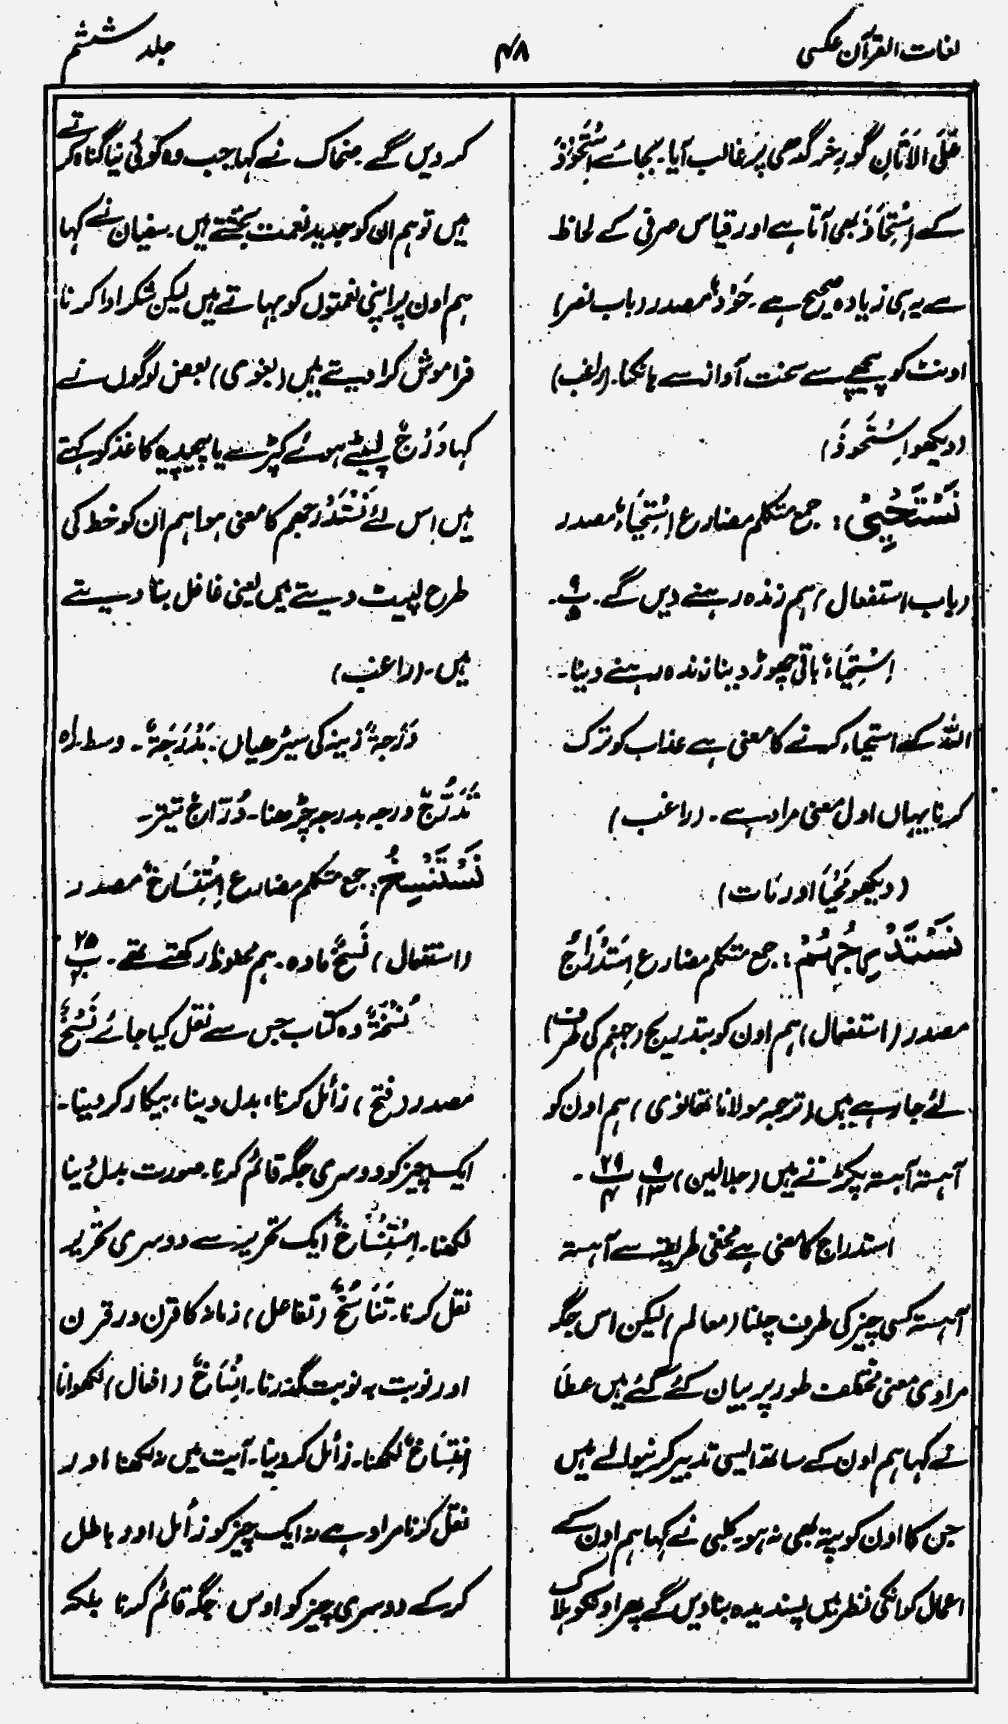 لغات القرآن عکسی
۴۸
جلد ششم
عَلَی الاَتَانِ گورخر گدھی پر غالب آیا۔ بجائے اِسْتَحْوَذَ
کے اِسْتَحَاذَ بھی آتا ہے اور قیاس صرفی کے لحاظ
سے یہی زیادہ صحیح ہے۔ حَوْذٌ مصدر (باب نصر)
اونٹ کو پیچھے سے سخت آواز سے ہانکنا۔ (راغب)
(دیکھو اِسْتَحْوَذَ)
نَسْتَحْیِیْ: جمع متکلم مضارع اِسْتِحْیَاءٌ مصدر
(باب استفعال) ہم زندہ رہنے دیں گے۔ پ۹/۵۔
اِسْتِحْیَاءٌ باقی چھوڑ دینا زندہ رہنے دینا۔
اللہ کے استحیاء کرنے کا معنی ہے عذاب کو ترک
کرنا یہاں اول معنی مراد ہے۔ (راغب)
(دیکھو مَحْیَا اور مَات)
نَسْتَدْرِجُہُمْ: جمع متکلم مضارع اِسْتِدْرَاجٌ
مصدر (استفعال) ہم اون کو بتدریج (جہنم کی طرف)
لئے جا رہے ہیں (ترجمہ مولانا تھانوی) ہم اون کو
آہستہ آہستہ پکڑتے ہیں (جلالین) پ۹/۱۳ پ۲۹/۴۔
استدراج کا معنی ہے مخفی طریقہ سے آہستہ
آہستہ کسی چیز کی طرف چلنا (معالم) لیکن اس جگہ
مرادی معنی مختلف طور پر بیان کئے گئے ہیں عطا
نے کہا ہم اون کے ساتھ ایسی تدبیر کرنیوالے ہیں
جن کا اون کو پتہ بھی نہ ہو۔ کلبی نے کہا ہم اون کے
اعمال کو انکی نظر میں پسندیدہ بنا دیں گے پھر اونکو ہلاک
کر دیں گے۔ ضحاک نے کہا جب وہ کوئی نیا گناہ کرتے
ہیں تو ہم ان کو جدید نعمت بخشتے ہیں۔ سفیان نے کہا
ہم اون پر اپنی نعمتوں کو بہاتے ہیں لیکن شکر ادا کرنا
فراموش کرا دیتے ہیں (بغوی) بعض لوگوں نے
کہا دَرْجٌ لپیٹے ہوئے کپڑے یا پیچیدہ کاغذ کو کہتے
ہیں اس لئے نَسْتَدْرِجُہم کا معنی ہوا ہم ان کو خط کی
طرح لپیٹ دیتے ہیں یعنی غافل بنا دیتے
ہیں۔ (راغب)
دَرَجَۃٌ زینہ کی سیڑھیاں۔ مَدْرَجَۃٌ۔ وسط راہ
تَدَرُّجٌ درجہ بدرجہ چڑھنا۔ دُرَّاجٌ تیتر۔
نَسْتَنْسِخُ: جمع متکلم مضارع اِسْتِنْسَاخٌ مصدر
(استفعال) نَسْخٌ مادہ۔ ہم محفوظ رکھتے تھے۔ پ۲۵/۲۰
نُسْخَۃٌ وہ کتاب جس سے نقل کیا جائے نَسْخٌ
مصدر (فتح) زائل کرنا، بدل دینا، بیکار کر دینا۔
ایک چیز کو دوسری جگہ قائم کرنا۔ صورت بدل دینا
لکھنا۔ اِسْتِنْسَاخٌ ایک تحریر سے دوسری تحریر
نقل کرنا۔ تَنَاسُخٌ (تفاعل) زمانہ کا قرن در قرن
اور نوبت بہ نوبت گذرنا۔ اِنْسَاخٌ (افعال) لکھوانا
اِنْتِسَاخٌ لکھنا۔ زائل کر دینا۔ آیت میں لکھنا اور
نقل کرنا مراد ہے نہ ایک چیز کو زائل اور باطل
کر کے دوسری چیز کو اوس جگہ قائم کرنا بلکہ